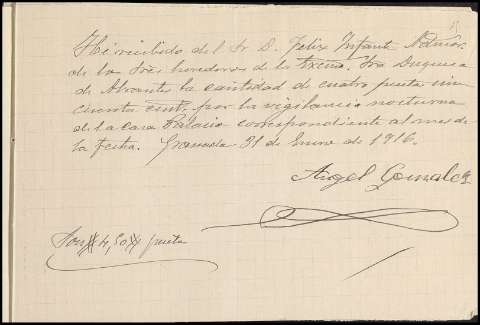 He recibido del Sr D. Felix Infante
de los Sres herederos de la Excma. Sra Duquesa
de Abrantes la cantidad de cuatro pesetas cin
cuenta cents por la vigilancia nocturna
de la Casa Palacio correspondiente al mes de
la fecha. Granada 31 de Enero de 1916.
Angel Gonzalez
Son 4,50 pesetas